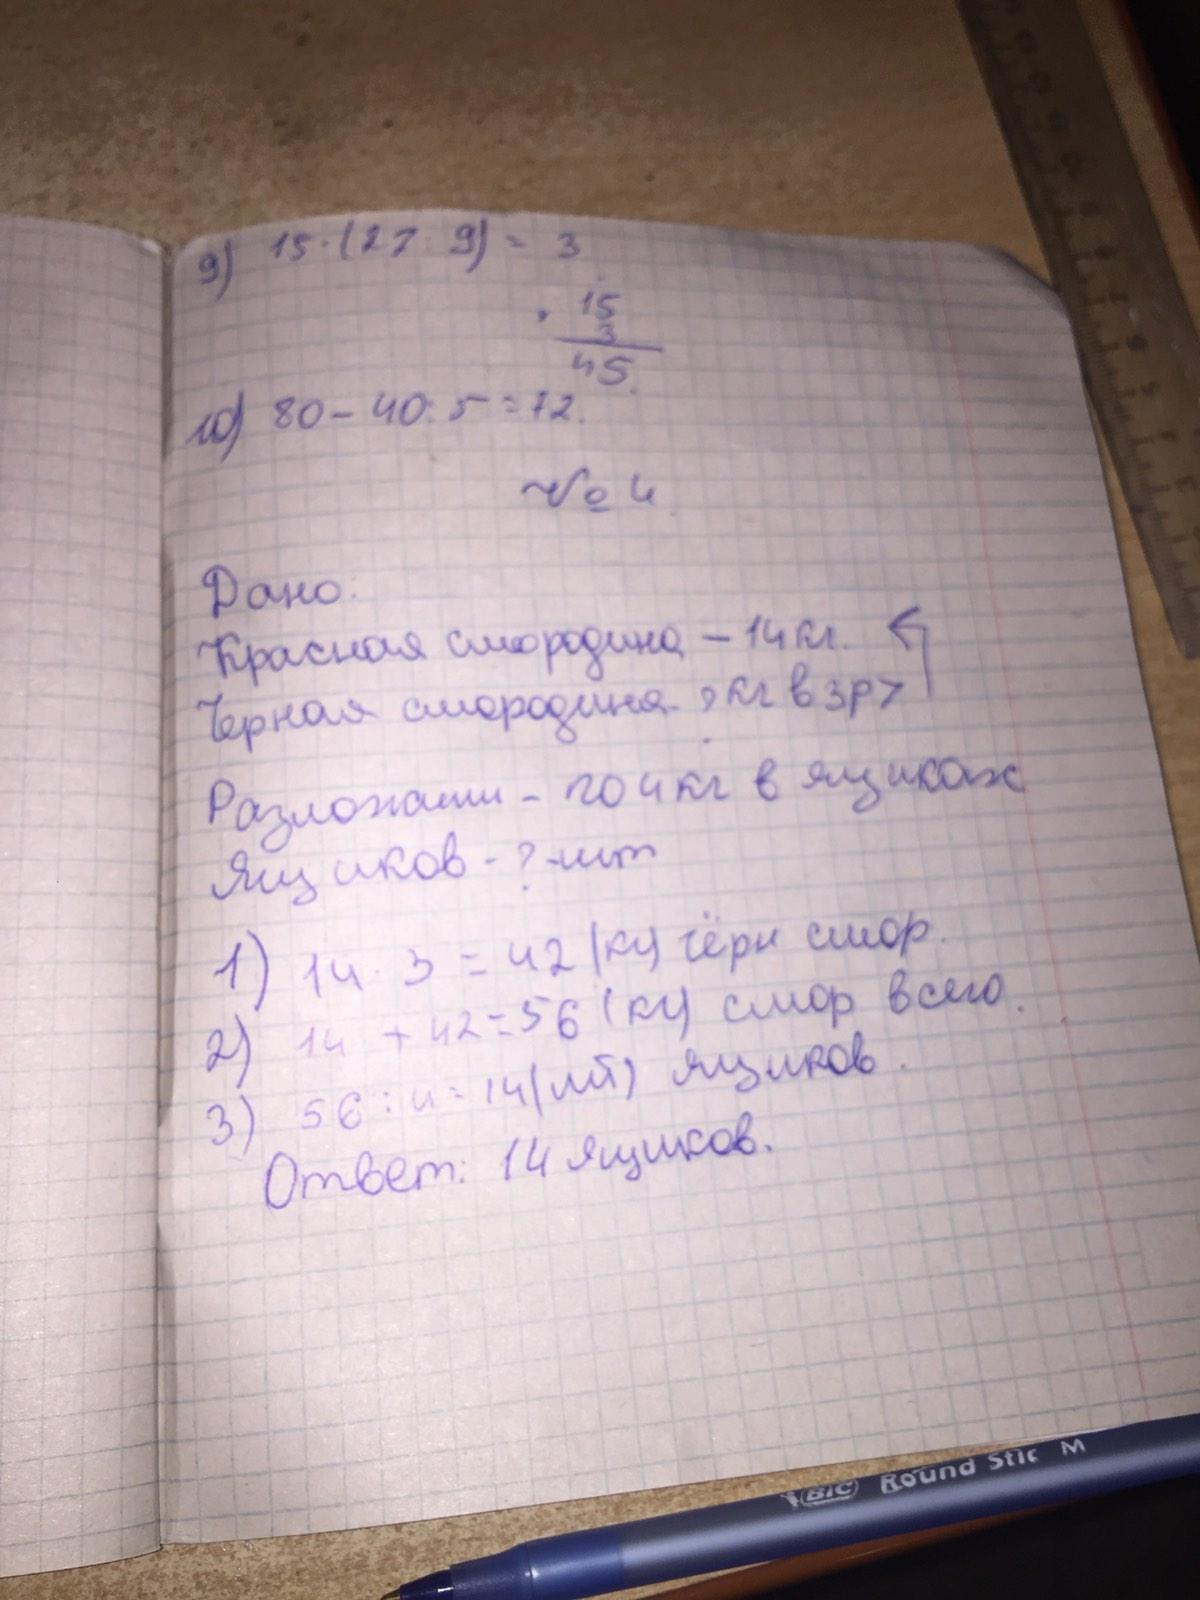 9) 15·(27:9) = 3
· 15
3
45.
10) 80 - 40:5 = 72.
№ 4
Дано:
Красная смородина - 14 кг.
Черная смородина - ? кг в 3 р >
Разложили - по 4 кг в ящиках
Ящиков - ? шт
1) 14 · 3 = 42 (кг) чёрн смор.
2) 14 + 42 = 56 (кг) смор всего.
3) 56 : 4 = 14 (шт) ящиков.
Ответ: 14 ящиков.
BIC Round Stic M